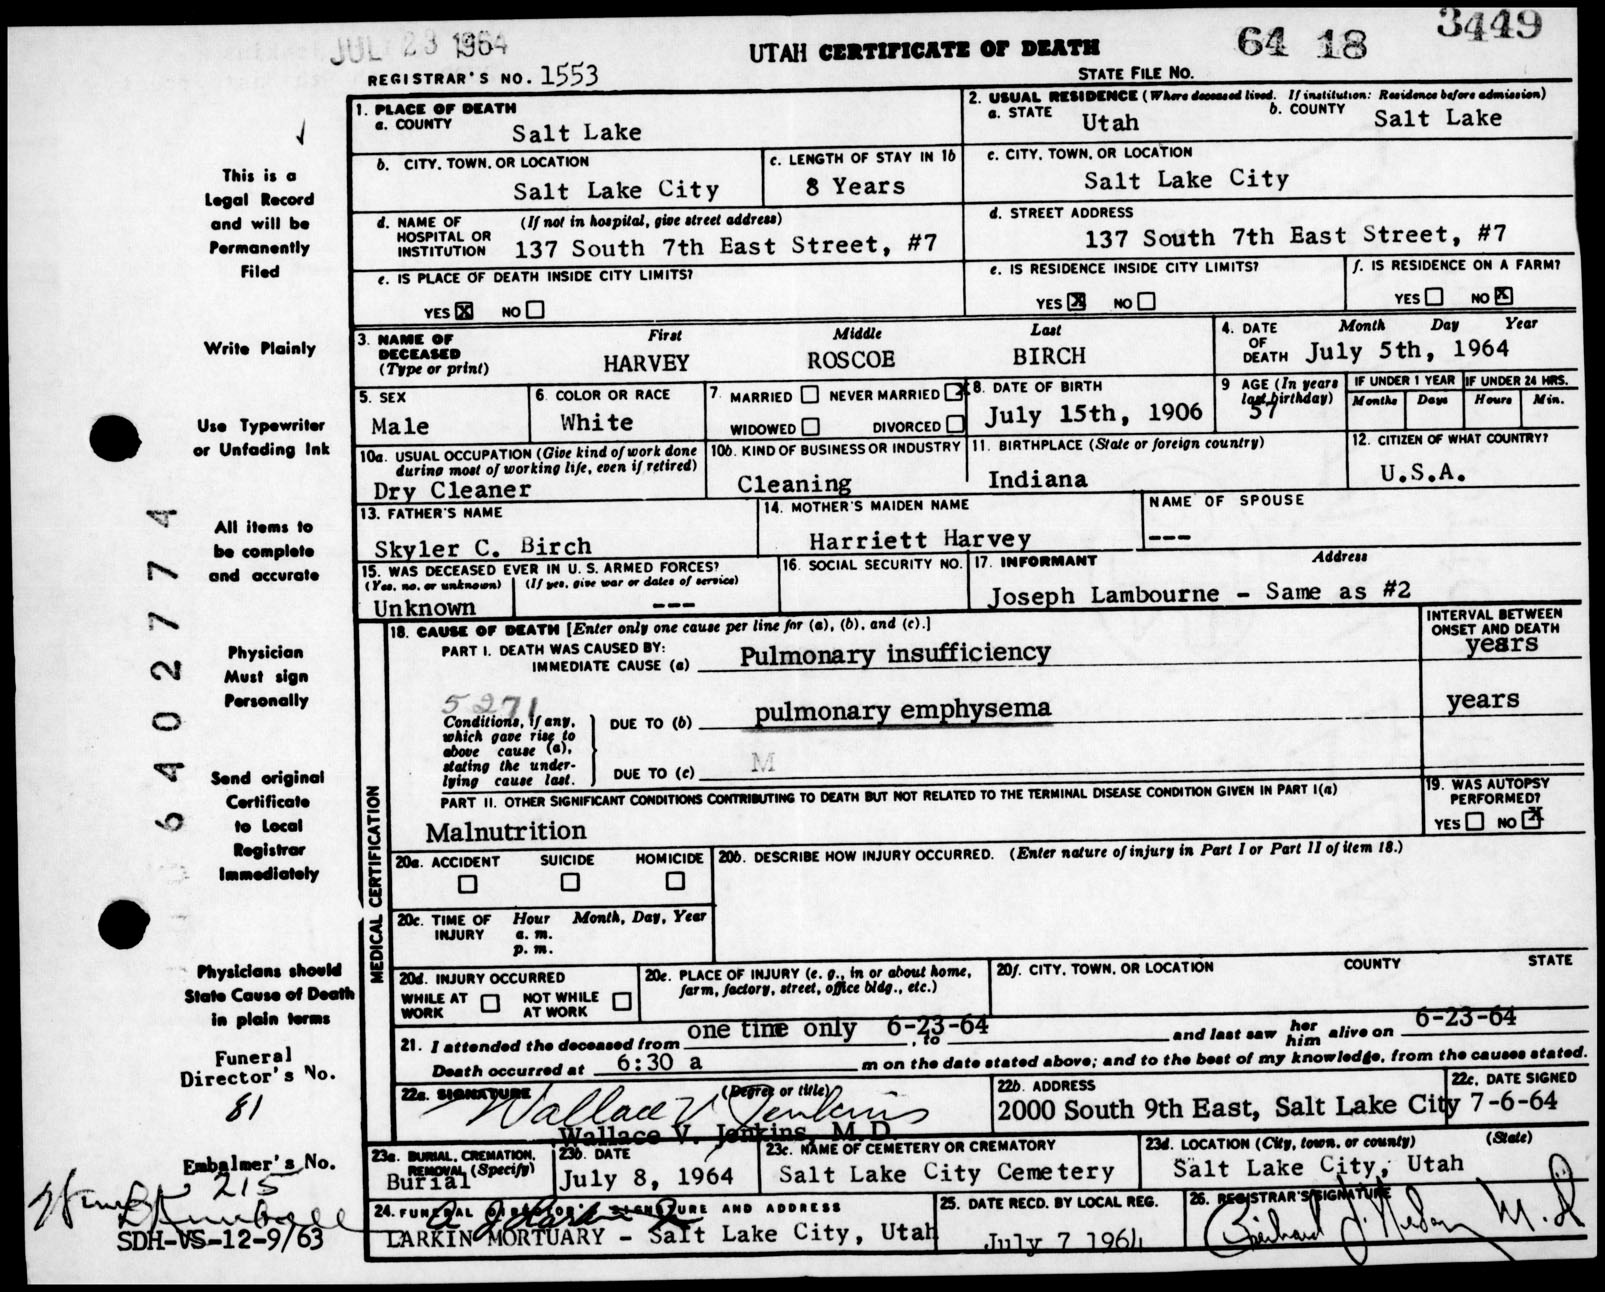 JUL 23 1964
UTAH CERTIFICATE OF DEATH
64 18 3449
REGISTRAR'S NO. 1553
STATE FILE NO.
1. PLACE OF DEATH
a. COUNTY
Salt Lake
2. USUAL RESIDENCE (Where deceased lived. If institution: Residence before admission)
a. STATE Utah
b. COUNTY Salt Lake
b. CITY, TOWN, OR LOCATION
Salt Lake City
c. LENGTH OF STAY IN 1b
8 Years
c. CITY, TOWN, OR LOCATION
Salt Lake City
d. NAME OF HOSPITAL OR INSTITUTION
(If not in hospital, give street address)
137 South 7th East Street, #7
d. STREET ADDRESS
137 South 7th East Street, #7
e. IS PLACE OF DEATH INSIDE CITY LIMITS?
YES X NO
e. IS RESIDENCE INSIDE CITY LIMITS?
YES X NO
f. IS RESIDENCE ON A FARM?
YES NO X
3. NAME OF DECEASED (Type or print)
First Middle Last
HARVEY ROSCOE BIRCH
4. DATE OF DEATH
Month Day Year
July 5th, 1964
5. SEX
Male
6. COLOR OR RACE
White
7. MARRIED NEVER MARRIED X
WIDOWED DIVORCED
8. DATE OF BIRTH
July 15th, 1906
9 AGE (In years last birthday)
57
IF UNDER 1 YEAR
Months Days
IF UNDER 24 HRS.
Hours Min.
10a. USUAL OCCUPATION (Give kind of work done during most of working life, even if retired)
Dry Cleaner
10b. KIND OF BUSINESS OR INDUSTRY
Cleaning
11. BIRTHPLACE (State or foreign country)
Indiana
12. CITIZEN OF WHAT COUNTRY?
U.S.A.
13. FATHER'S NAME
Skyler C. Birch
14. MOTHER'S MAIDEN NAME
Harriett Harvey
NAME OF SPOUSE
---
15. WAS DECEASED EVER IN U. S. ARMED FORCES?
(Yes, no, or unknown) (If yes, give war or dates of service)
Unknown ---
16. SOCIAL SECURITY NO.
17. INFORMANT Address
Joseph Lambourne - Same as #2
MEDICAL CERTIFICATION
18. CAUSE OF DEATH [Enter only one cause per line for (a), (b), and (c).]
INTERVAL BETWEEN ONSET AND DEATH
PART I. DEATH WAS CAUSED BY:
IMMEDIATE CAUSE (a) Pulmonary insufficiency years
5271
Conditions, if any, which gave rise to above cause (a), stating the underlying cause last.
DUE TO (b) pulmonary emphysema years
DUE TO (c) M
PART II. OTHER SIGNIFICANT CONDITIONS CONTRIBUTING TO DEATH BUT NOT RELATED TO THE TERMINAL DISEASE CONDITION GIVEN IN PART I(a)
Malnutrition
19. WAS AUTOPSY PERFORMED?
YES NO X
20a. ACCIDENT SUICIDE HOMICIDE
20b. DESCRIBE HOW INJURY OCCURRED. (Enter nature of injury in Part I or Part II of item 18.)
20c. TIME OF INJURY
Hour Month, Day, Year
a. m.
p. m.
20d. INJURY OCCURRED
WHILE AT WORK NOT WHILE AT WORK
20e. PLACE OF INJURY (e. g., in or about home, farm, factory, street, office bldg., etc.)
20f. CITY, TOWN, OR LOCATION COUNTY STATE
21. I attended the deceased from one time only 6-23-64, to and last saw her him alive on 6-23-64
Death occurred at 6:30 a m on the date stated above; and to the best of my knowledge, from the causes stated.
22a. SIGNATURE (Degree or title)
Wallace V. Jenkins
Wallace V. Jenkins, M.D.
22b. ADDRESS
2000 South 9th East, Salt Lake City
22c. DATE SIGNED
7-6-64
23a. BURIAL, CREMATION, REMOVAL (Specify)
Burial
23b. DATE
July 8, 1964
23c. NAME OF CEMETERY OR CREMATORY
Salt Lake City Cemetery
23d. LOCATION (City, town, or county) (State)
Salt Lake City, Utah
24. FUNERAL DIRECTOR'S SIGNATURE AND ADDRESS
LARKIN MORTUARY - Salt Lake City, Utah
25. DATE RECD. BY LOCAL REG.
July 7 1964
26. REGISTRAR'S SIGNATURE
M.D.
This is a
Legal Record
and will be
Permanently
Filed
Write Plainly
Use Typewriter
or Unfading Ink
All items to
be complete
and accurate
Physician
Must sign
Personally
Send original
Certificate
to Local
Registrar
Immediately
Physicians should
State Cause of Death
in plain terms
Funeral
Director's No.
81
Embalmer's No.
215
SDH-VS-12-9/63
6402774